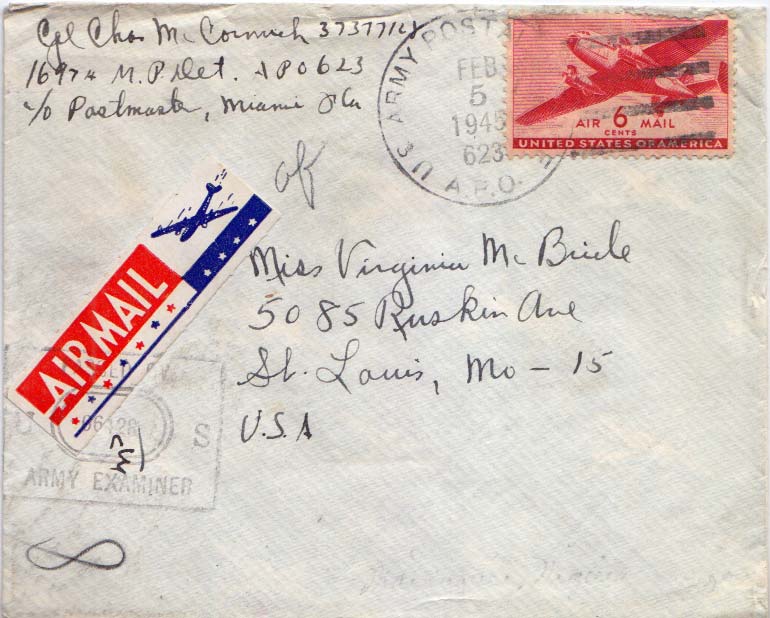 Cpl Chas McCormick 37377128
1697th M.P. Det. APO 623
c/o Postmaster, Miami Fla
U.S. ARMY POSTAL
FEB
5
1945
623
A.P.O.
AIR 6 MAIL
CENTS
UNITED STATES OF AMERICA
AIR MAIL
Miss Virginia McBride
5085 Ruskin Ave
St. Louis, Mo - 15
U.S.A
BY
U S
ARMY EXAMINER